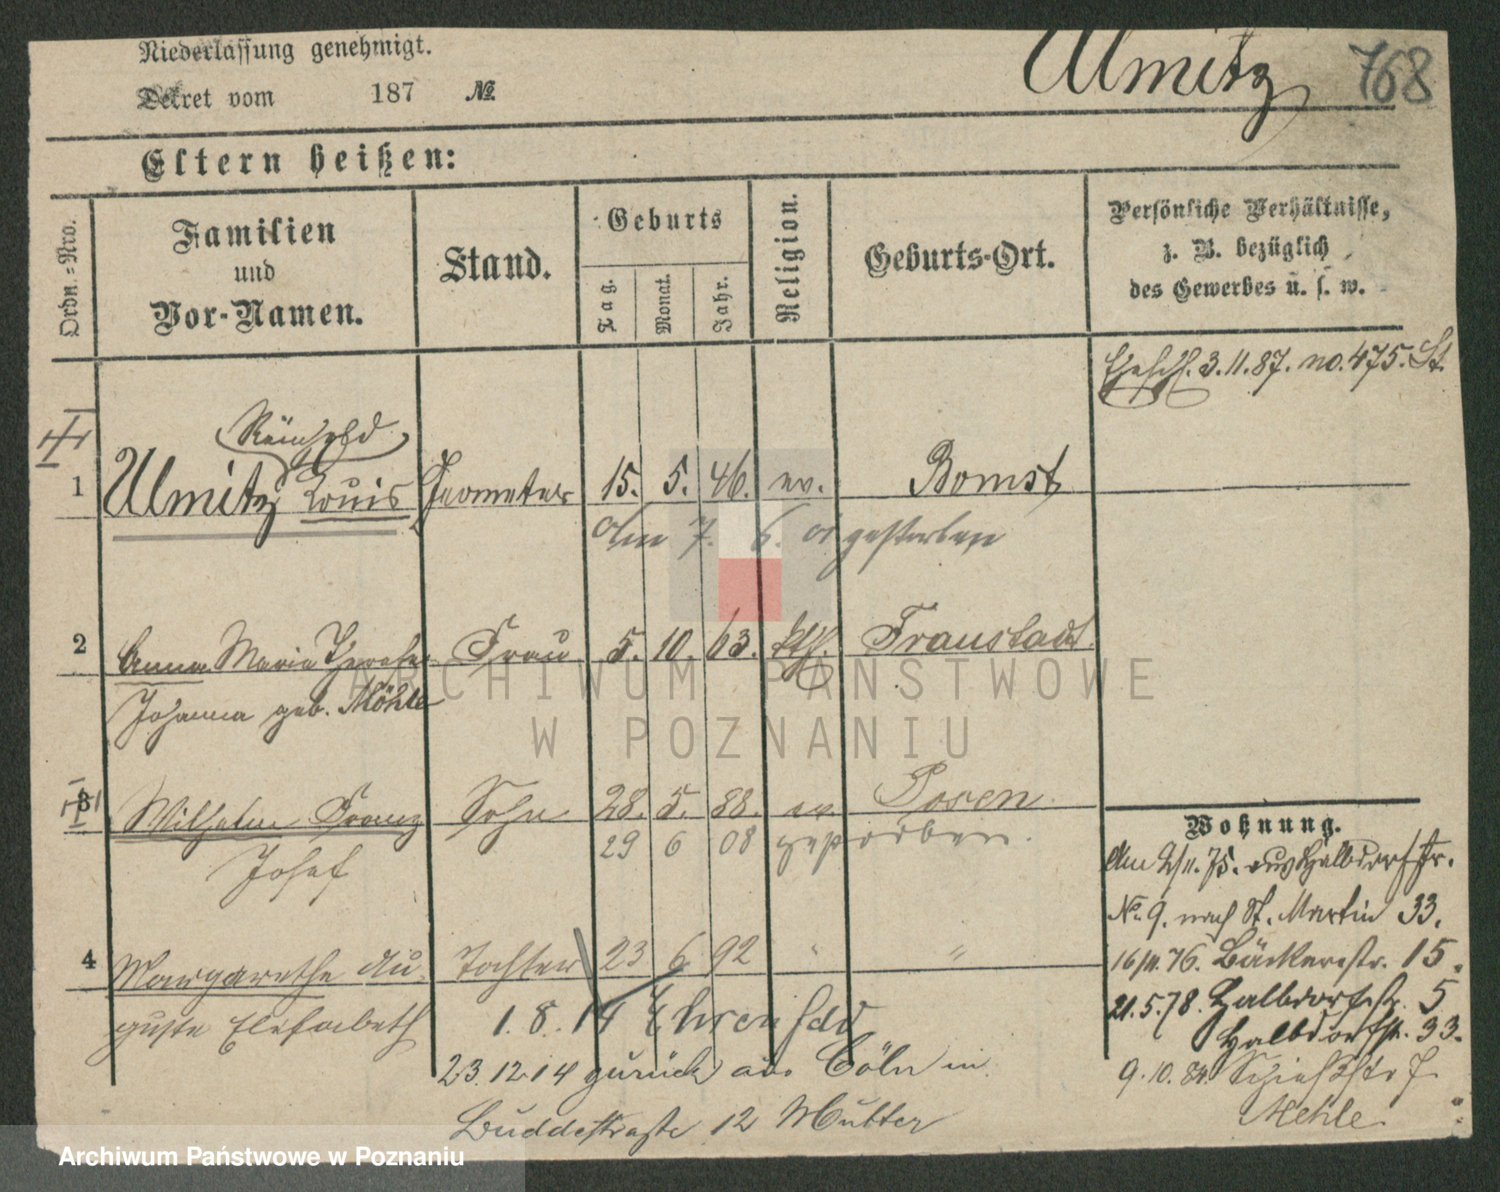 Niederlassung genehmigt.
Dekret vom 187 №
Ulmitz 768
Eltern heißen:
Ordn.=Nro.
Familien
und
Vor-Namen.
Stand.
Geburts
Tag.
Monat.
Jahr.
Religion.
Geburts-Ort.
Persönliche Verhältnisse,
z. B. bezüglich
des Gewerbes u. s. w.
Eheschl. 3.11.87. no. 475. St.
Reinhold
1 Ulmitz Louis Geometer 15. 5. 46. ev. Bomst
Am 7. 6. 01 gestorben
2 Anna Maria Therese Frau 5. 10. 63. kth. Fraustadt
Johanna geb. Möhle
3 Wilhelm Franz Sohn 28. 5. 88. ev. Posen.
Josef 29 6 08 gestorben.
4 Margarethe Au- Tochter 23 6 92 " "
guste Elisabeth 1. 8. 14 Ehrenfeld
23.12.14 zurück aus Cöln in
Buddestraße 12 Mutter
Wohnung.
Am 2/11.75. aus Halbdorfstr.
No. 9. nach St. Martin 33.
76. Bäckerstr. 15.
21.5.78. Halbdorfstr. 5
Halbdorfstr. 33.
9.10.84
Mehle
ARCHIWUM PAŃSTWOWE
W POZNANIU
Archiwum Państwowe w Poznaniu